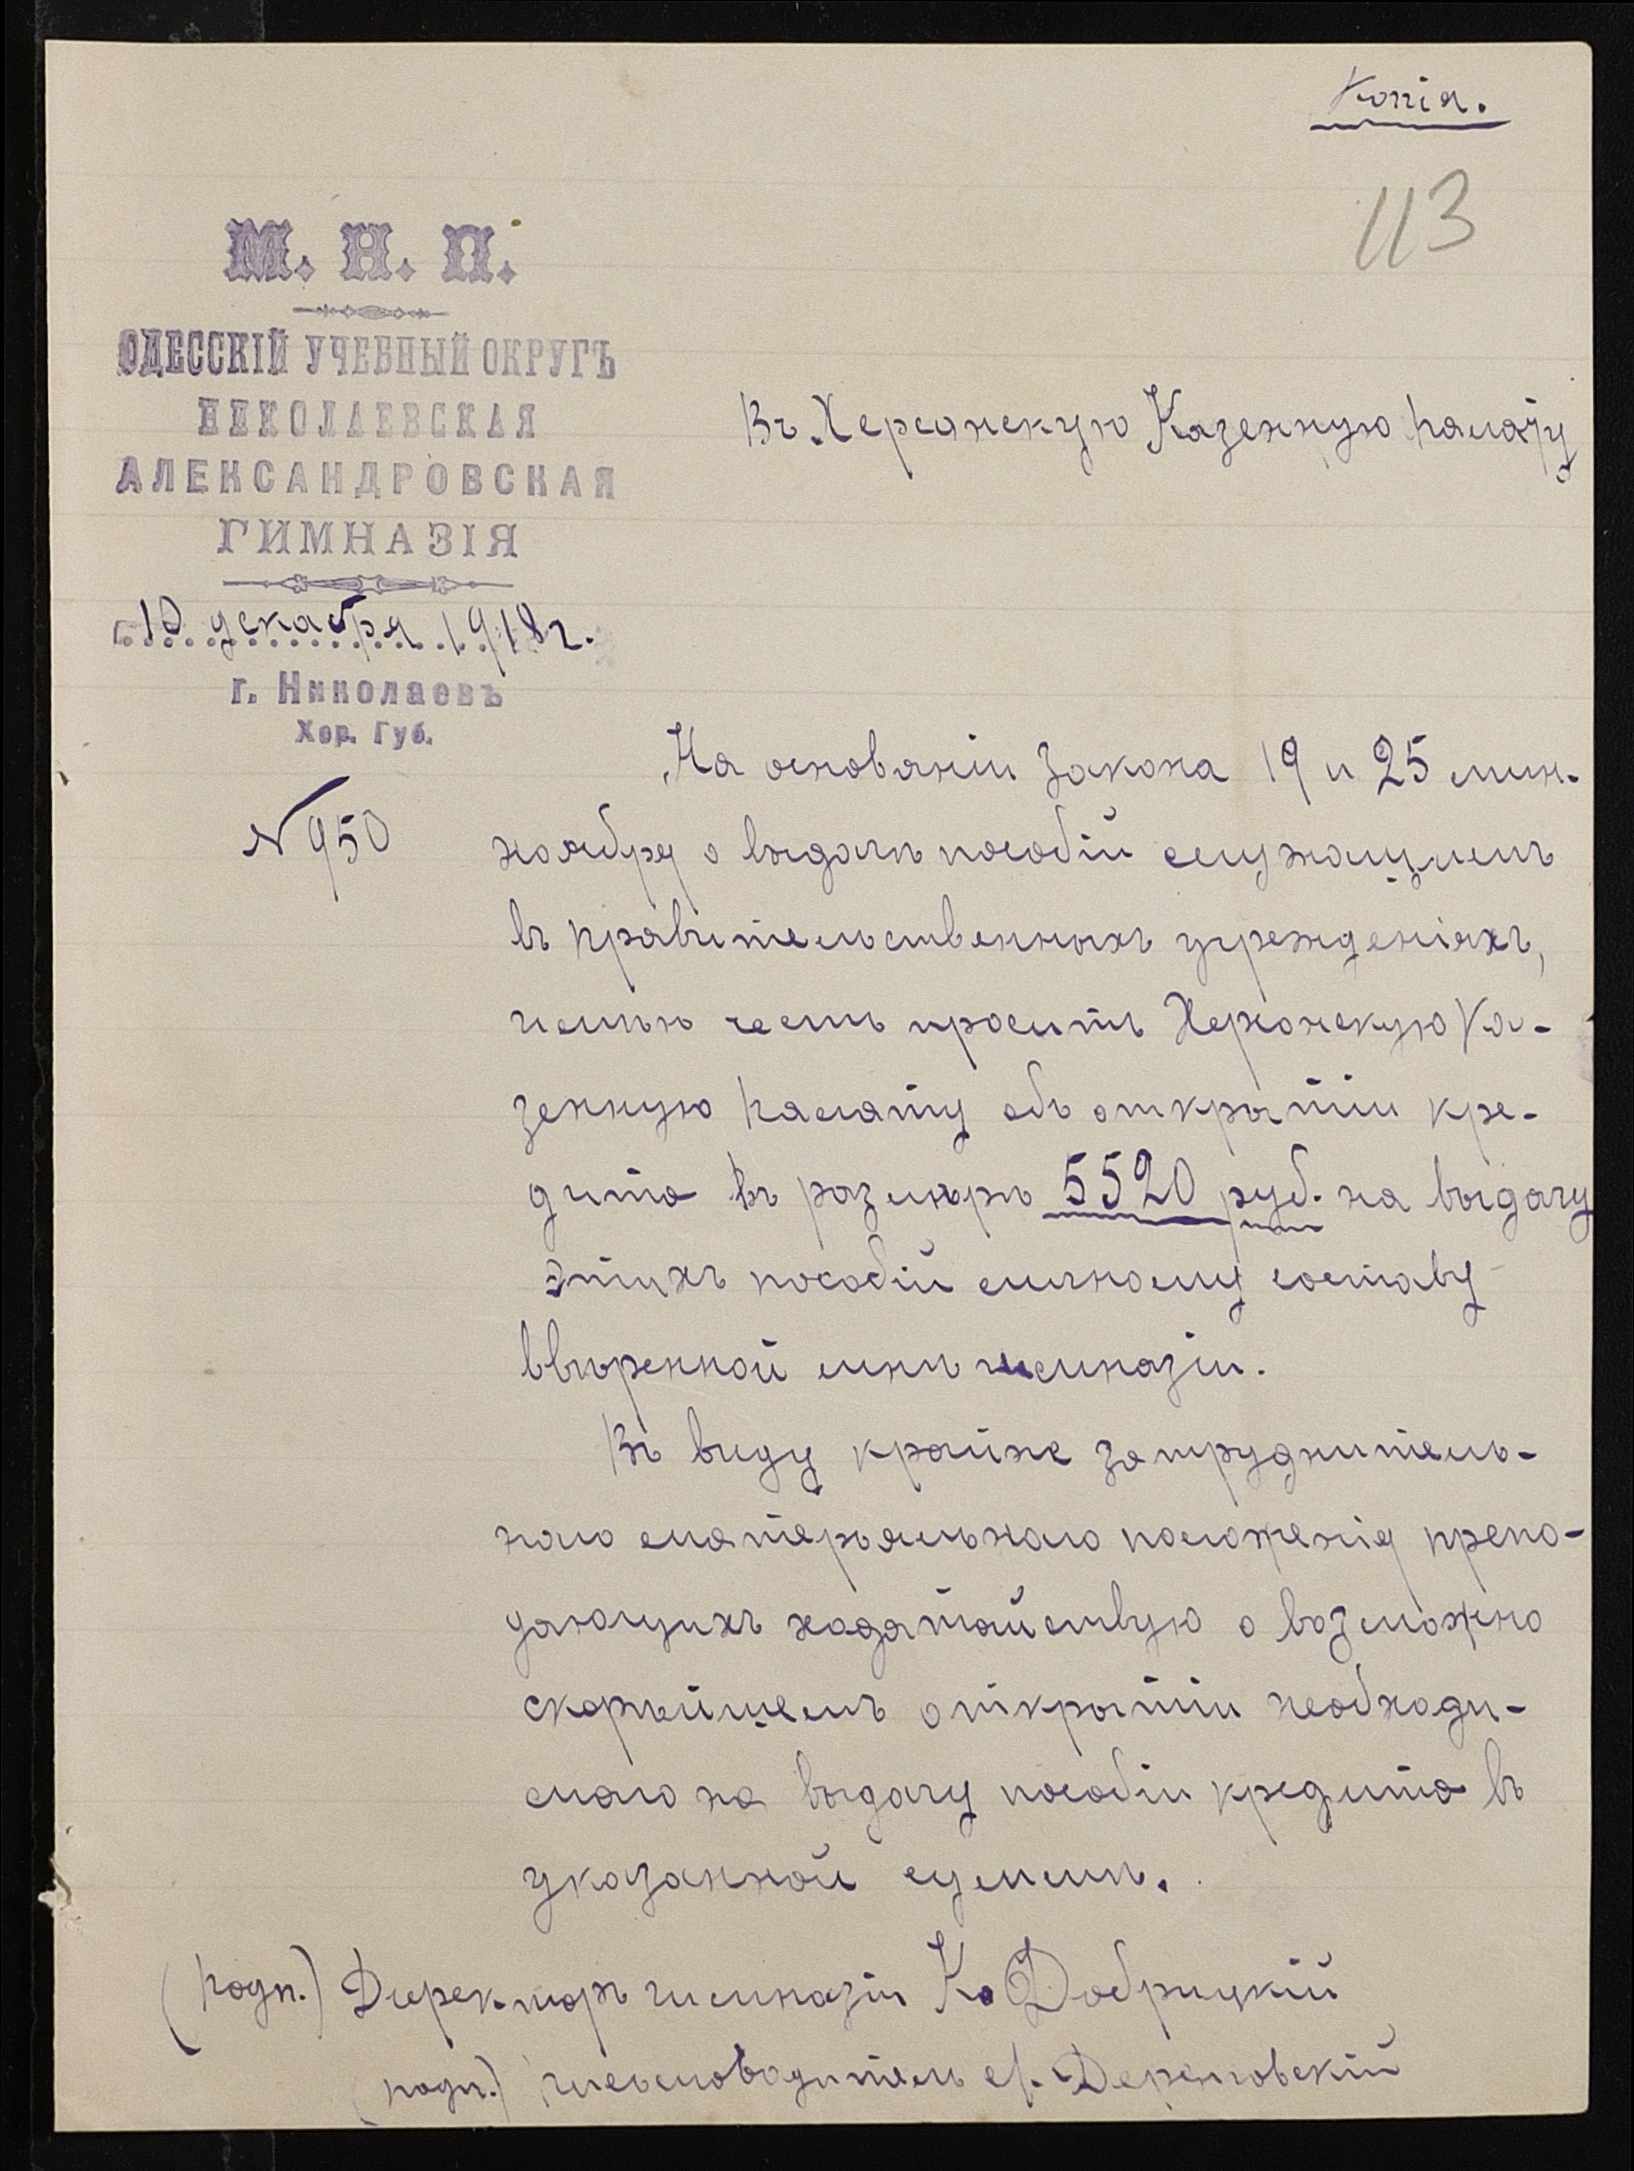 Копія.
113
М. Н. П.
ОДЕССКІЙ УЧЕБНЫЙ ОКРУГЪ
НИКОЛАЕВСКАЯ
АЛЕКСАНДРОВСКАЯ
ГИМНАЗІЯ
10 декабря 1918 г.
г. Николаевъ
Хер. Губ.
№ 950
Въ Херсонскую Казенную палату
На основаніи закона 19 и 25 мин.
ноября о выдачѣ пособій служащимъ
въ правительственныхъ учрежденіяхъ,
имѣю честь просить Херсонскую Ка-
зенную палату объ открытіи кре-
дита въ размѣрѣ 5520 руб. на выдачу
этихъ пособій личному составу
ввѣренной мнѣ гимназіи.
Въ виду крайне затруднитель-
наго матерьяльнаго положенія препо-
дающихъ ходатайствую о возможно
скорѣйшемъ открытіи необходи-
маго на выдачу пособій кредита въ
указанной суммѣ.
(подп.) Директоръ гимназіи К. Добрицкій
(подп.) письмоводитель